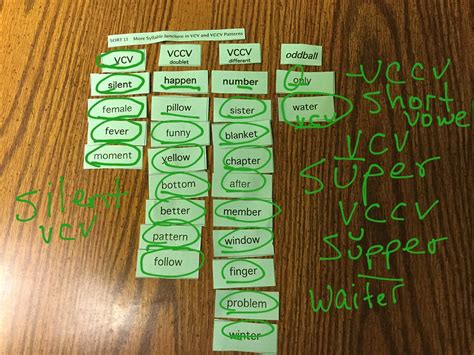 SORT 11 More Syllable Junctions in VCV and VCCV Patterns
VCV VCCV doublet VCCV different oddball
silent happen number only
female pillow sister water
fever funny blanket
moment yellow chapter
bottom after
better member
pattern window
follow finger
problem
winter
VCV
silent
VCV
-VCCV
short
vowe
VCV
super
VCCV
supper
waiter